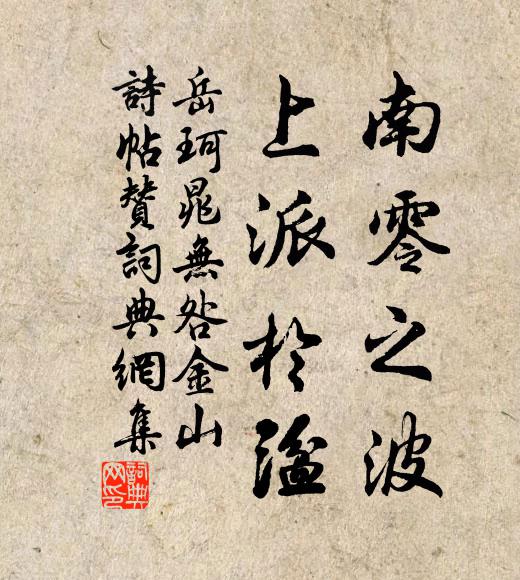 南零之波
上派於溢
岳珂晁無咎金山
詩帖贊詞典網集
詞典网印